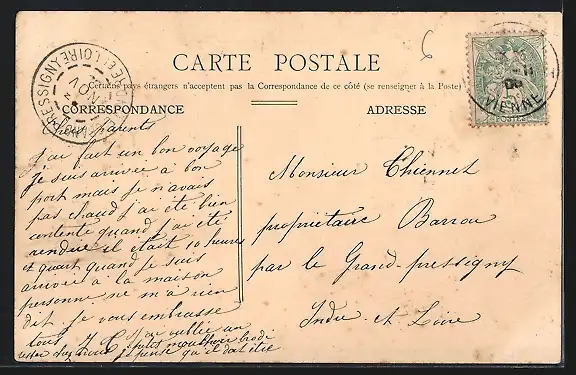 CARTE POSTALE
Certains pays étrangers n'acceptent pas la Correspondance de ce côté (se renseigner à la Poste)
CORRESPONDANCE
ADRESSE
Chers parents
j'ai fait un bon voyage
je suis arrivée à bon
port mais je n'avais
pas chaud j'ai été bien
contente quand j'ai été
rendue il était 10 heures
et quart quand je suis
arrivée à la maison
personne ne m'a rien
dit je vous embrasse
tous
j'ai oublié un
petit mouchoir brodé
je pense qu'il doit être
rester chez vous
Monsieur Chiennet
propriétaire Barrou
par le Grand-pressigny
Indre et Loire
VIENNE
POSTES
PRESSIGNY
NOV
6